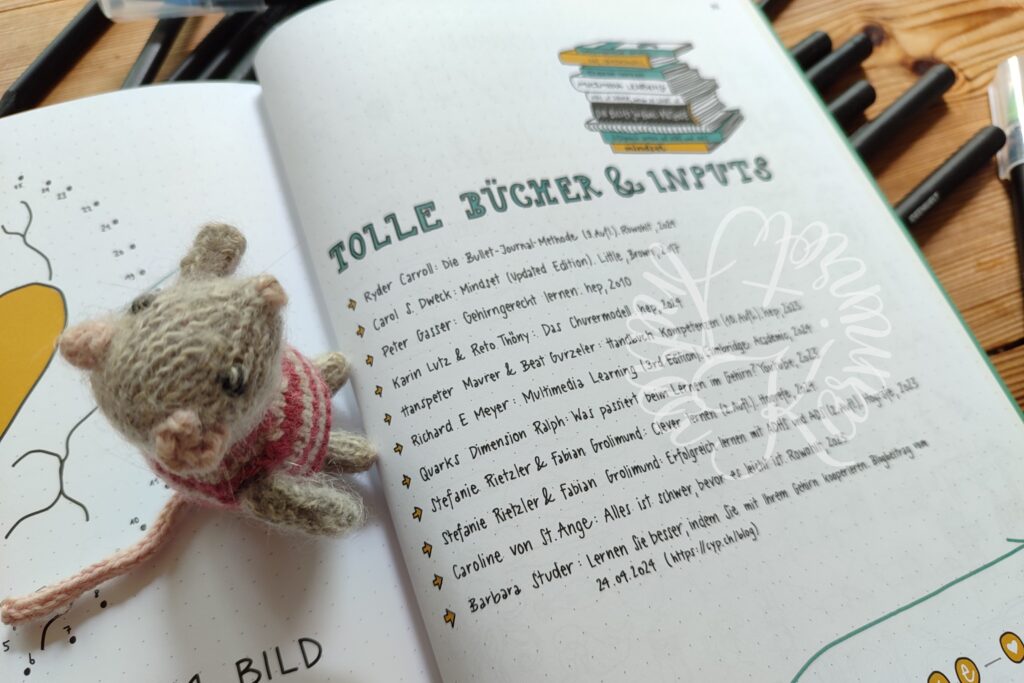 TOLLE BÜCHER & INPUTS
Ryder Carroll: Die Bullet-Journal-Methode (3. Aufl.). Rowohlt, 2024
Carol S. Dweck: Mindset (Updated Edition). Little, Brown, 2017
Peter Gasser: Gehirngerecht lernen. hep, 2010
Karin Lutz & Reto Thöny: Das Churermodell. hep, 2024
Hanspeter Maurer & Beat Gurzeler: Handbuch Kompetenzen (10. Aufl.). hep, 2023
Richard E Meyer: Multimedia Learning (3rd Edition). Cambridge: Academic, 2024
Quarks Dimension Ralph: Was passiert beim Lernen im Gehirn? Youtube, 2023
Stefanie Rietzler & Fabian Grolimund: Clever lernen. (2. Aufl.). Hogrefe, 2024
Stefanie Rietzler & Fabian Grolimund: Erfolgreich lernen mit ADHS und ADS (2. Aufl.). Hogrefe, 2023
Caroline von St. Ange: Alles ist schwer, bevor es leicht ist. Rowohlt, 2023
Barbara Studer: Lernen Sie besser, indem Sie mit Ihrem Gehirn kooperieren. Blogbeitrag vom
24.09.2024 (https://cyp.ch/blog)
mindset
BILD
5
6
7
40